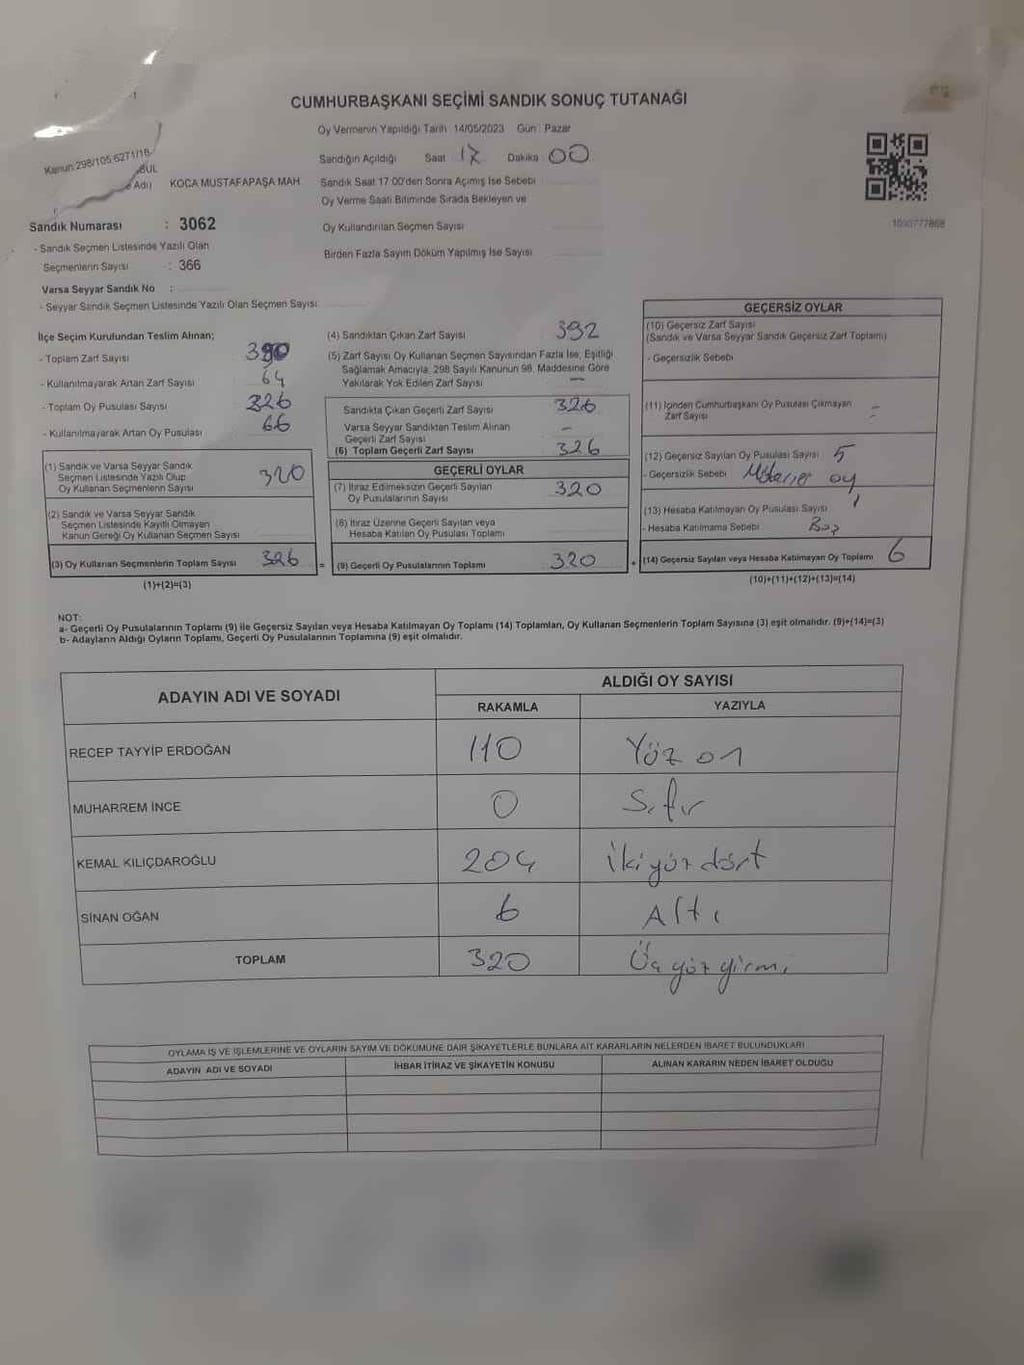 CUMHURBAŞKANI SEÇİMİ SANDIK SONUÇ TUTANAĞI
Oy Vermenin Yapıldığı Tarih 14/05/2023 Gün: Pazar
Kanun:298/105,6271/18
Sandığın Açıldığı Saat 17 Dakika 00
BUL
Adı) KOCA MUSTAFAPAŞA MAH
Sandık Saat 17:00'den Sonra Açılmış İse Sebebi
Oy Verme Saati Bitiminde Sırada Bekleyen ve
Oy Kullandırılan Seçmen Sayısı
1090777868
Sandık Numarası : 3062
- Sandık Seçmen Listesinde Yazılı Olan
Seçmenlerin Sayısı : 366
Birden Fazla Sayım Döküm Yapılmış İse Sayısı
Varsa Seyyar Sandık No :
- Seyyar Sandık Seçmen Listesinde Yazılı Olan Seçmen Sayısı:
İlçe Seçim Kurulundan Teslim Alınan;
- Toplam Zarf Sayısı 390
- Kullanılmayarak Artan Zarf Sayısı 64
- Toplam Oy Pusulası Sayısı 326
- Kullanılmayarak Artan Oy Pusulası 66
(1) Sandık ve Varsa Seyyar Sandık
Seçmen Listesinde Yazılı Olup
Oy Kullanan Seçmenlerin Sayısı 320
(2) Sandık ve Varsa Seyyar Sandık
Seçmen Listesinde Kayıtlı Olmayan
Kanun Gereği Oy Kullanan Seçmen Sayısı
(3) Oy Kullanan Seçmenlerin Toplam Sayısı 326 =
(1)+(2)=(3)
(4) Sandıktan Çıkan Zarf Sayısı 392
(5) Zarf Sayısı Oy Kullanan Seçmen Sayısından Fazla İse, Eşitliği
Sağlamak Amacıyla, 298 Sayılı Kanunun 98. Maddesine Göre
Yakılarak Yok Edilen Zarf Sayısı —
Sandıkta Çıkan Geçerli Zarf Sayısı 326
Varsa Seyyar Sandıktan Teslim Alınan
Geçerli Zarf Sayısı -
(6) Toplam Geçerli Zarf Sayısı 326
GEÇERLİ OYLAR
(7) İtiraz Edilmeksizin Geçerli Sayılan
Oy Pusulalarının Sayısı 320
(8) İtiraz Üzerine Geçerli Sayılan veya
Hesaba Katılan Oy Pusulası Toplamı
(9) Geçerli Oy Pusulalarının Toplamı 320 +
GEÇERSİZ OYLAR
(10) Geçersiz Zarf Sayısı
(Sandık ve Varsa Seyyar Sandık Geçersiz Zarf Toplamı)
- Geçersizlik Sebebi
(11) İçinden Cumhurbaşkanı Oy Pusulası Çıkmayan
Zarf Sayısı
(12) Geçersiz Sayılan Oy Pusulası Sayısı 5
- Geçersizlik Sebebi oy
(13) Hesaba Katılmayan Oy Pusulası Sayısı 1
- Hesaba Katılmama Sebebi Boş
(14) Geçersiz Sayılan veya Hesaba Katılmayan Oy Toplamı 6
(10)+(11)+(12)+(13)=(14)
NOT:
a- Geçerli Oy Pusulalarının Toplamı (9) ile Geçersiz Sayılan veya Hesaba Katılmayan Oy Toplamı (14) Toplamları, Oy Kullanan Seçmenlerin Toplam Sayısına (3) eşit olmalıdır. (9)+(14)=(3)
b- Adayların Aldığı Oyların Toplamı, Geçerli Oy Pusulalarının Toplamına (9) eşit olmalıdır.
ADAYIN ADI VE SOYADI ALDIĞI OY SAYISI
RAKAMLA YAZIYLA
RECEP TAYYİP ERDOĞAN 110 Yüz on
MUHARREM İNCE 0 Sıfır
KEMAL KILIÇDAROĞLU 204 İkiyüz dört
SİNAN OĞAN 6 Altı
TOPLAM 320 Üçyüz yirmi
OYLAMA İŞ VE İŞLEMLERİNE VE OYLARIN SAYIM VE DÖKÜMÜNE DAİR ŞİKAYETLERLE BUNLARA AİT KARARLARIN NELERDEN İBARET BULUNDUKLARI
ADAYIN ADI VE SOYADI İHBAR İTİRAZ VE ŞİKAYETİN KONUSU ALINAN KARARIN NEDEN İBARET OLDUĞU